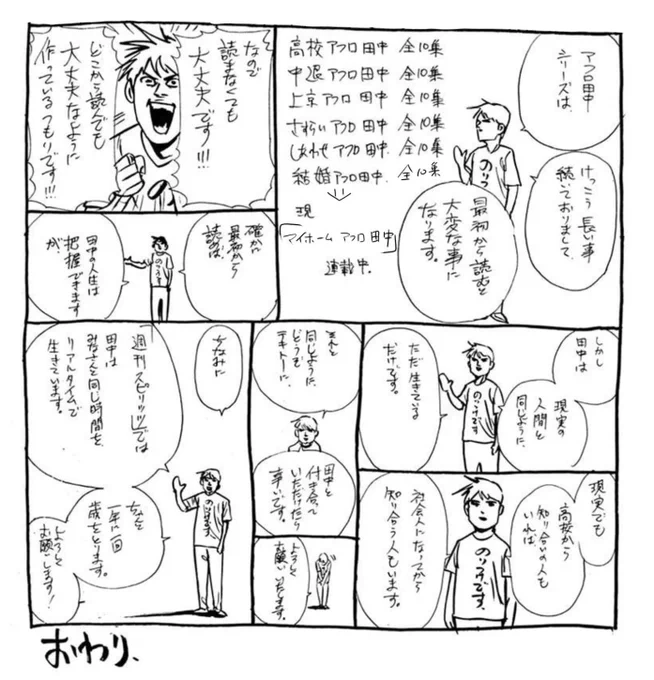 アフロ田中
シリーズは、
けっこう長い事
続いておりまして、
高校アフロ田中 全10集
中退アフロ田中 全10集
上京アフロ田中 全10集
さすらいアフロ田中 全10集
しあわせアフロ田中 全10集
結婚アフロ田中 全10集
現
マイホームアフロ田中
連載中。
最初から読むと
大変な事に
なります。
のりつけです
なので
読まなくても
大丈夫です!!!
どこから読んでも
大丈夫なように
作っているつもりです!!!
確かに
最初から
読めば、
田中の人生は
把握できます
が
のりつけです
しかし
田中は
現実の
人間と
同じように、
ただ生きている
だけです。
のりつけです
現実でも
高校から
知り合いの人も
いれば
社会人になってから
知り合う人もいます。
のりつけです。
それと
同じように、
どうぞ
テキトーに
田中と
付き合って
いただけたら
幸いです。
よろしく
お願いいたします。
ちなみに
週刊スピリッツでは
田中は
みなさんと同じ時間を、
リアルタイムで
生きています。
ちゃんと
一年に一回
歳をとります。
よろしく
お願いします!
のりつけです
おわり、